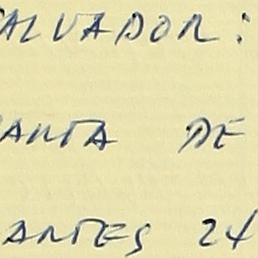 SALVADOR:
PLANTA DE
ANTES 24